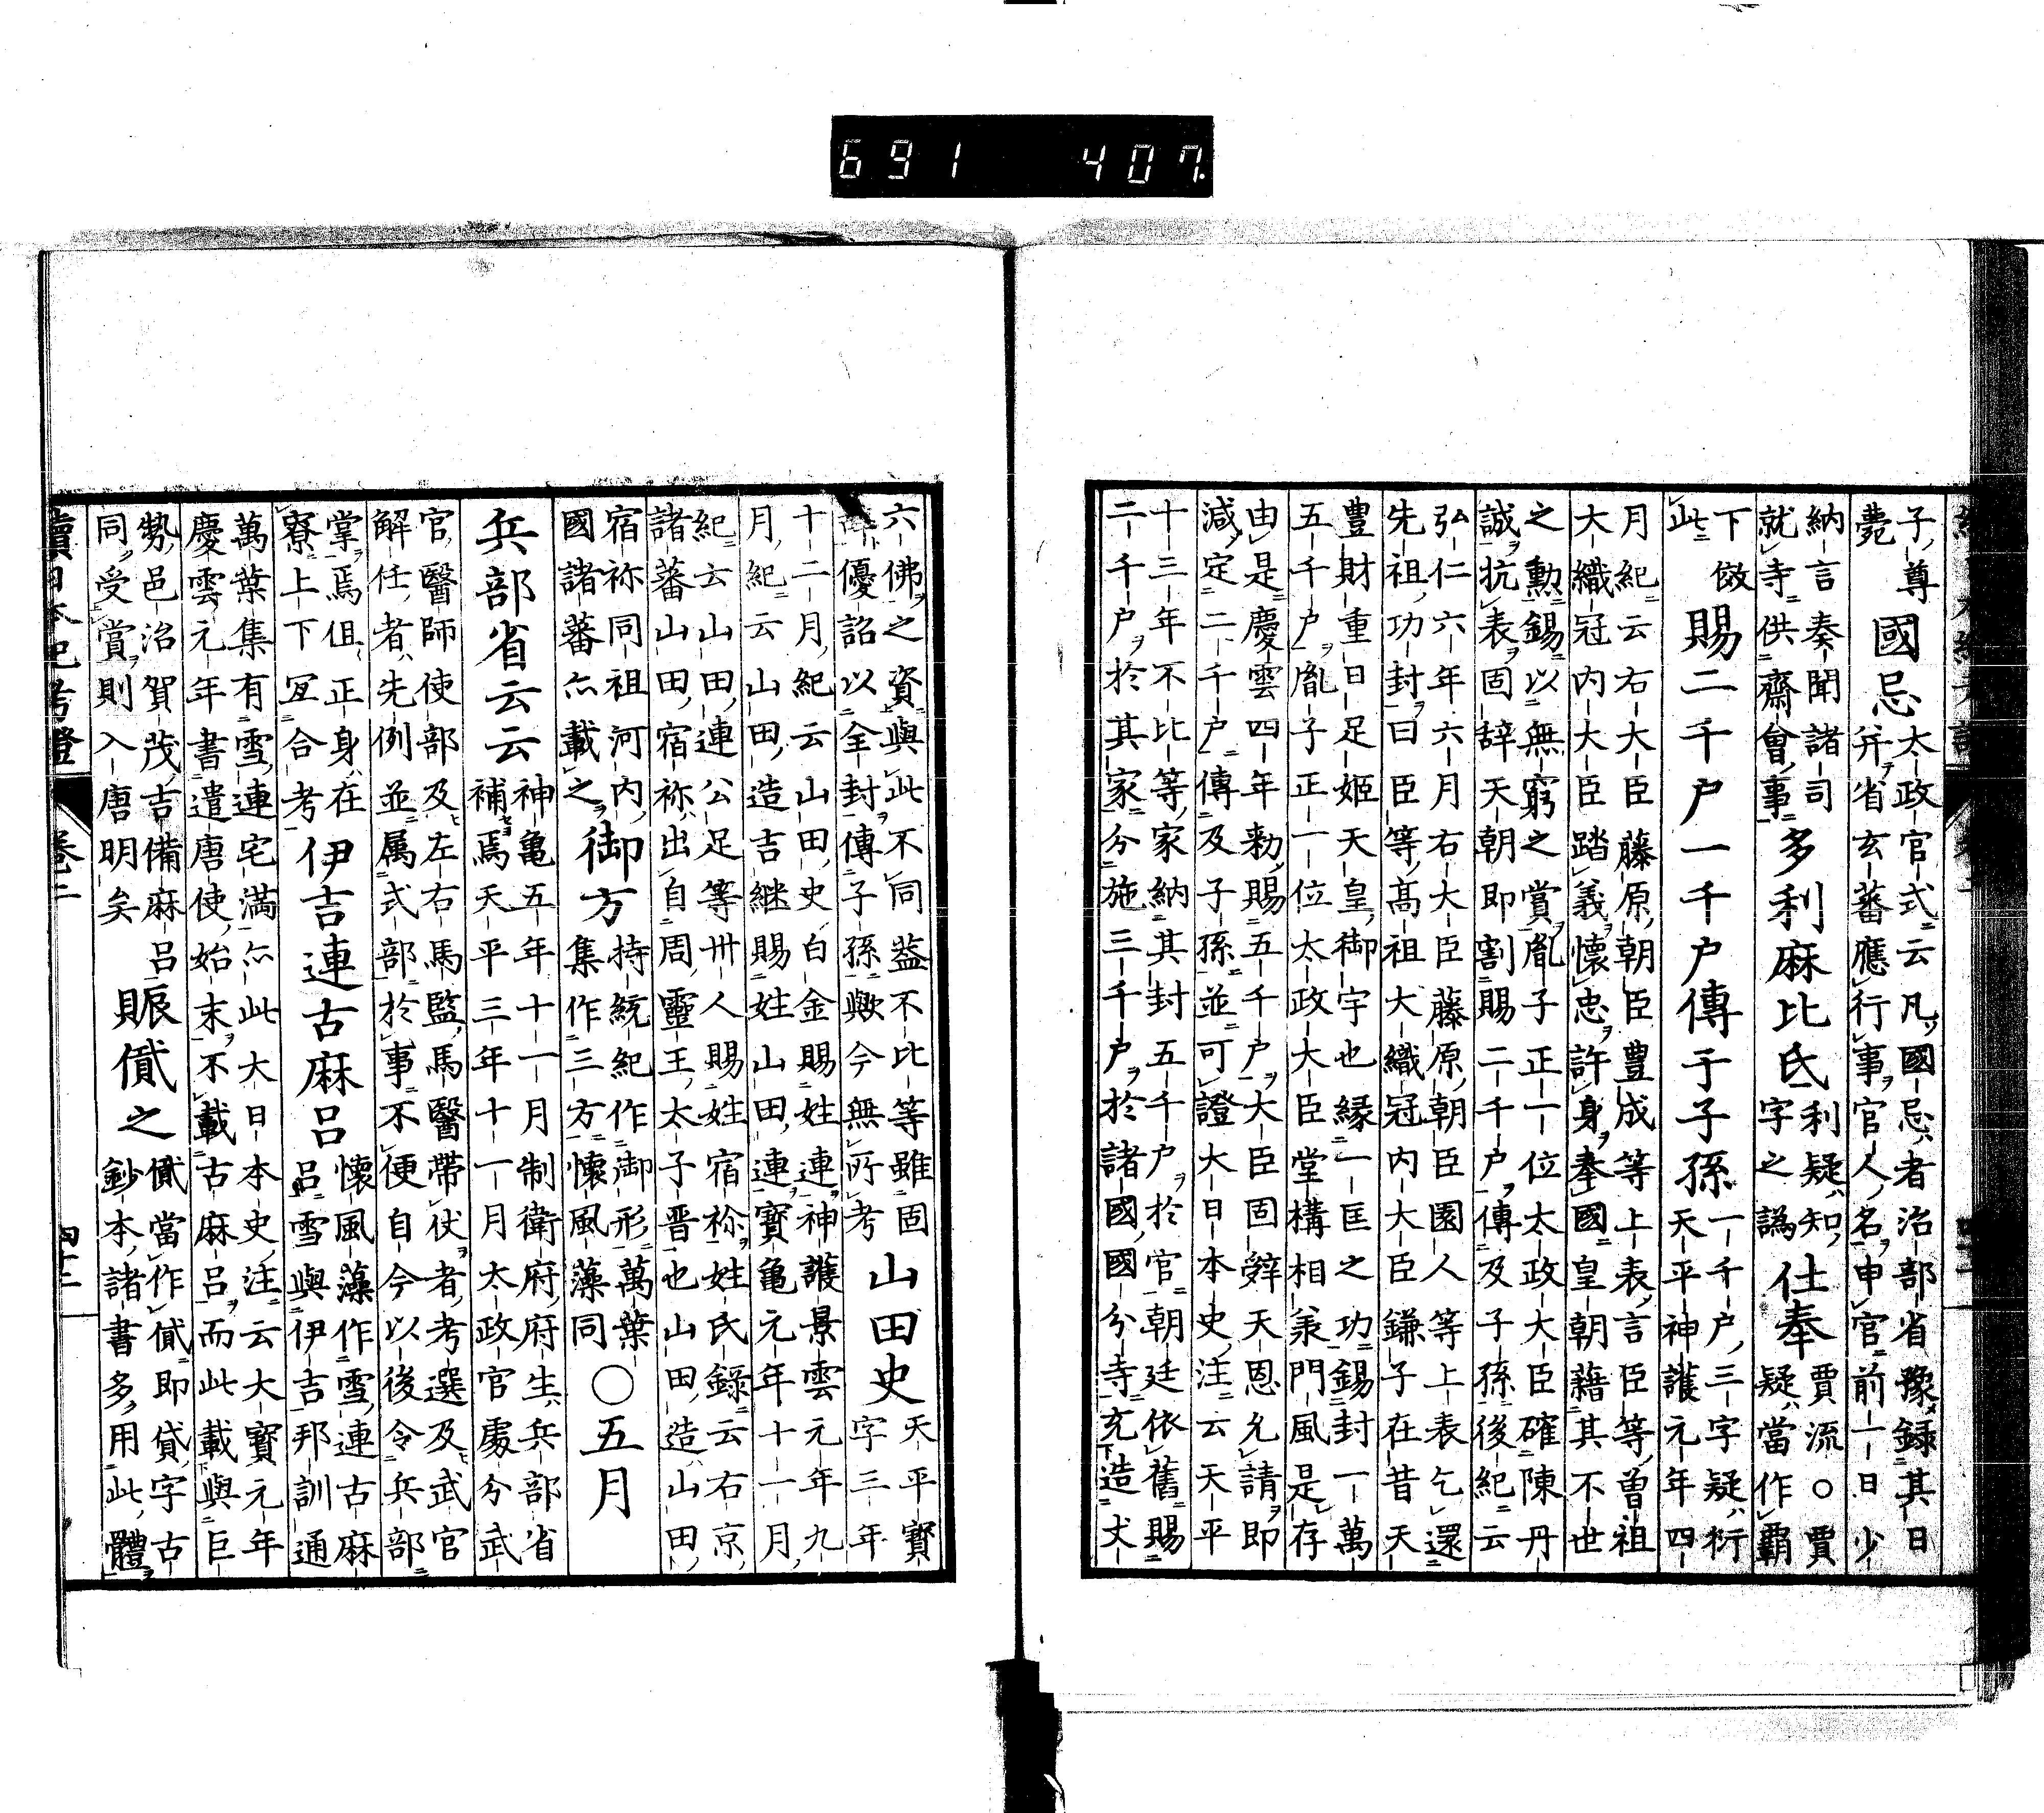 691 407
子尊
薨
國忌
太政官式云凡國忌者治部省豫録其日
并省玄蕃應行事官人名申官前一日少
納言奏聞諸司
就寺供齋會事
多利麻比氐
利疑知
字之譌
仕奉
賈流○賈
疑當作覇
下倣
此
賜二千戸一千戸傳于子孫
一千戸三字疑衍
天平神護元年四
月紀云右大臣藤原朝臣豊成等上表言臣等曽祖
大織冠内大臣踏義懷忠許身奉國皇朝藉其不世
之勳錫以無窮之賞胤子正一位太政大臣確陳丹
誠抗表固辞天朝即割賜二千戸傳及子孫後紀云
弘仁六年六月右大臣藤原朝臣園人等上表乞還
先祖功封曰臣等髙祖大織冠内大臣鎌子在昔天
豊財重日足姬天皇御宇也縁一匡之功錫封一萬
五千戸胤子正一位太政大臣堂構相羕門風是存
由是慶雲四年勅賜五千戸大臣固辤天恩允請即
減定二千戸傳及子孫並可證大日本史注云天平
十三年不比等家納其封五千戸於官朝廷依舊賜
二千戸於其家分施三千戸於諸國國分寺充造丈
六佛之資與此不同葢不比等雖固
辭優詔以全封傳子孫歟今無所考
山田史
天平寶
字三年
十二月紀云山田史白金賜姓連神護景雲元年九
月紀云山田造吉継賜姓山田連寶亀元年十一月
紀云山田連公足等卅人賜姓宿祢姓氏錄云右京
諸蕃山田宿祢出自周靈王太子晋也山田造山田
宿祢同祖河内
國諸蕃亦載之
御方
持統紀作御形萬葉
集作三方懷風藻同
○五月
兵部省云云
神亀五年十一月制衛府府生兵部省
補焉天平三年十一月太政官處分武
官醫師使部及左右馬監馬醫帶仗者考選及武官
解任者先例並属式部於事不便自今以後令兵部
掌焉但正身在
寮上下冝合考
伊吉連古麻呂
懷風藻作雪連古麻
呂雪與伊吉邦訓通
萬葉集有雪連宅満亦此大日本史注云大寶元年
慶雲元年書遣唐使始末不載古麻呂而此載與巨
勢邑治賀茂吉備麻呂
同受賞則入唐明矣
賑貸之
貸當作貸即貸字古
鈔本諸書多用此體
續日本紀考證
卷二
四十二